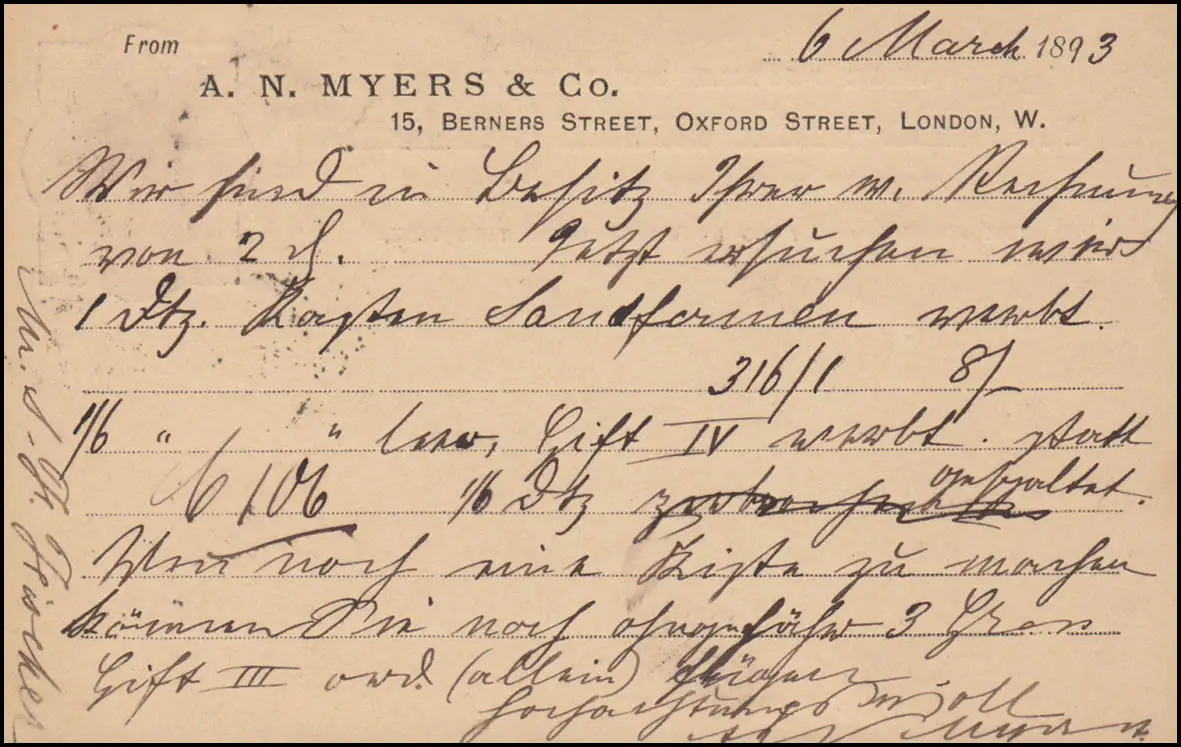 From
6 March 1893
A. N. MYERS & CO.
15, BERNERS STREET, OXFORD STREET, LONDON, W.
Wir sind in Besitz Ihrer w. Rechnung
von 2 d. Jetzt ersuchen wir
1 Dtz. Kasten Sandformen
316/1 8/-
1/6 " " leer, Stift IV statt
6/06 1/6 Dtz gespaltet.
Wenn noch eine Kiste zu machen
können Sie noch ohngefähr 3 Gross
Stift III ord. (allein)
Hochachtungsvoll
A N Myers
Fischer